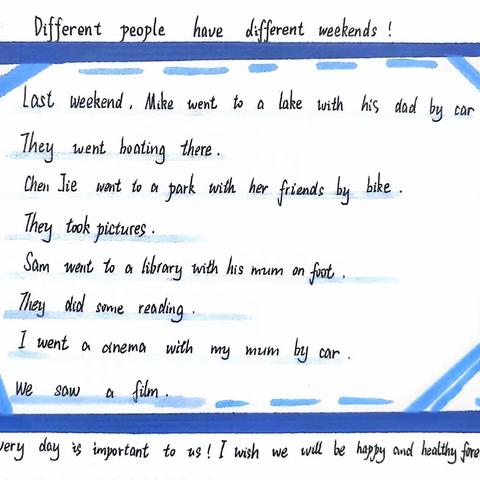 Different people have different weekends!
Last weekend, Mike went to a lake with his dad by car
They went boating there.
Chen Jie went to a park with her friends by bike.
They took pictures.
Sam went to a library with his mum on foot.
They did some reading.
I went a cinema with my mum by car.
We saw a film.
very day is important to us! I wish we will be happy and healthy fore